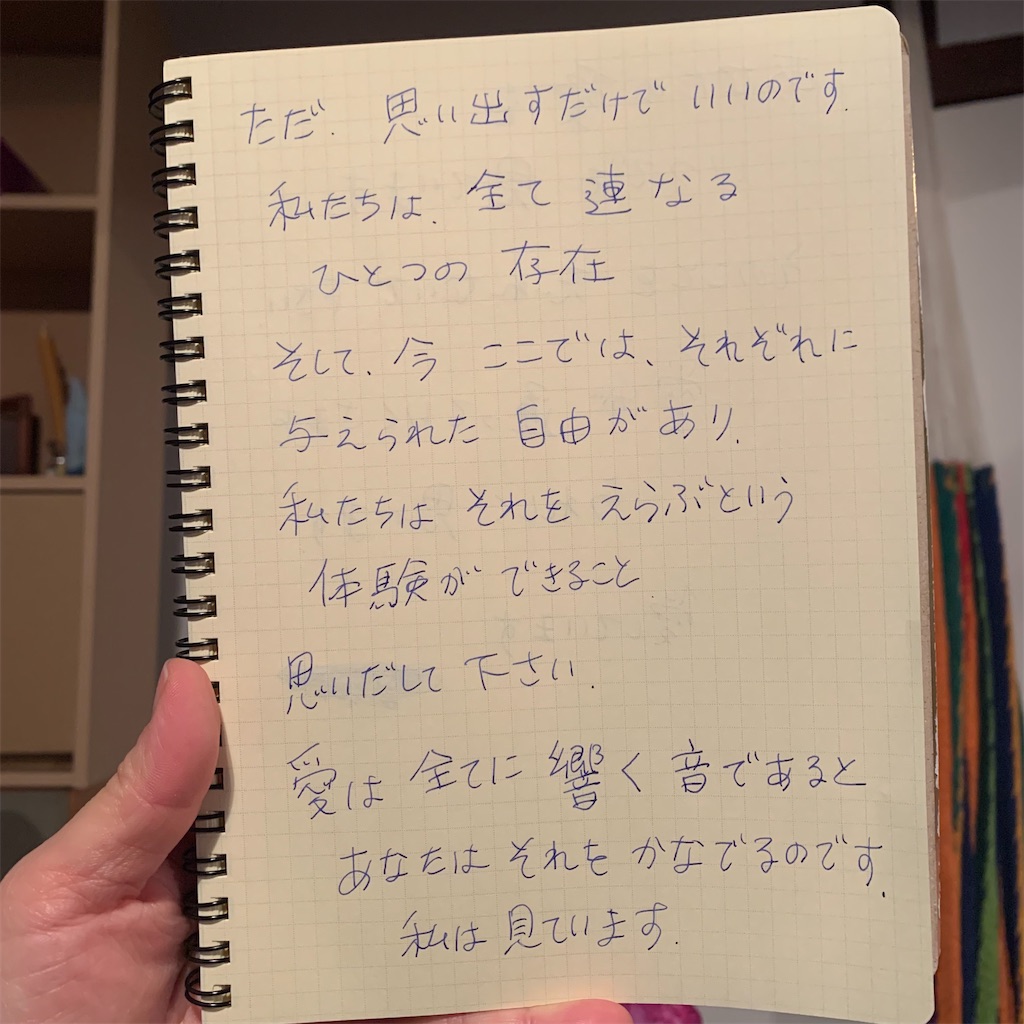 ただ. 思い出すだけで いいのです.
私たちは. 全て 連なる
ひとつの 存在
そして. 今 ここでは、それぞれに
与えられた 自由があり.
私たちは それを えらぶという
体験が できること.
思いだして 下さい.
愛は 全てに 響く 音であると
あなたは それを かなでるのです.
私は 見ています.